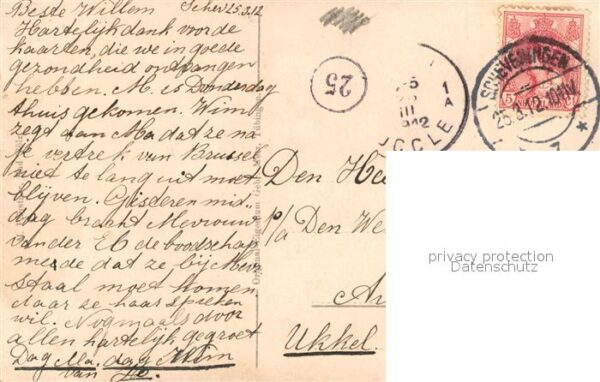 Beste Willem Schev 25.3.12
Hartelijk dank voor de
kaarten, die we in goede
gezondheid ontvangen
hebben. M. is Donderdag
thuis gekomen. Wim
zegt aan Ma dat ze na
je vertrek van Brussel
niet te lang uit moet
blijven. Gisteren mid-
dag bracht Mevrouw
van der El de boodschap
mede dat ze bij Mevr.
Staal moet komen,
daar ze haar spreken
wil. Nogmaals door
allen hartelijk gegroet
Dag Ma. dag Wim
van
25
1
A
III
1912
UCCLE
SCHEVENINGEN
25.3.12.10-11V
5
Den Hee
p/a Den We
Ukkel
privacy protection
Datenschutz